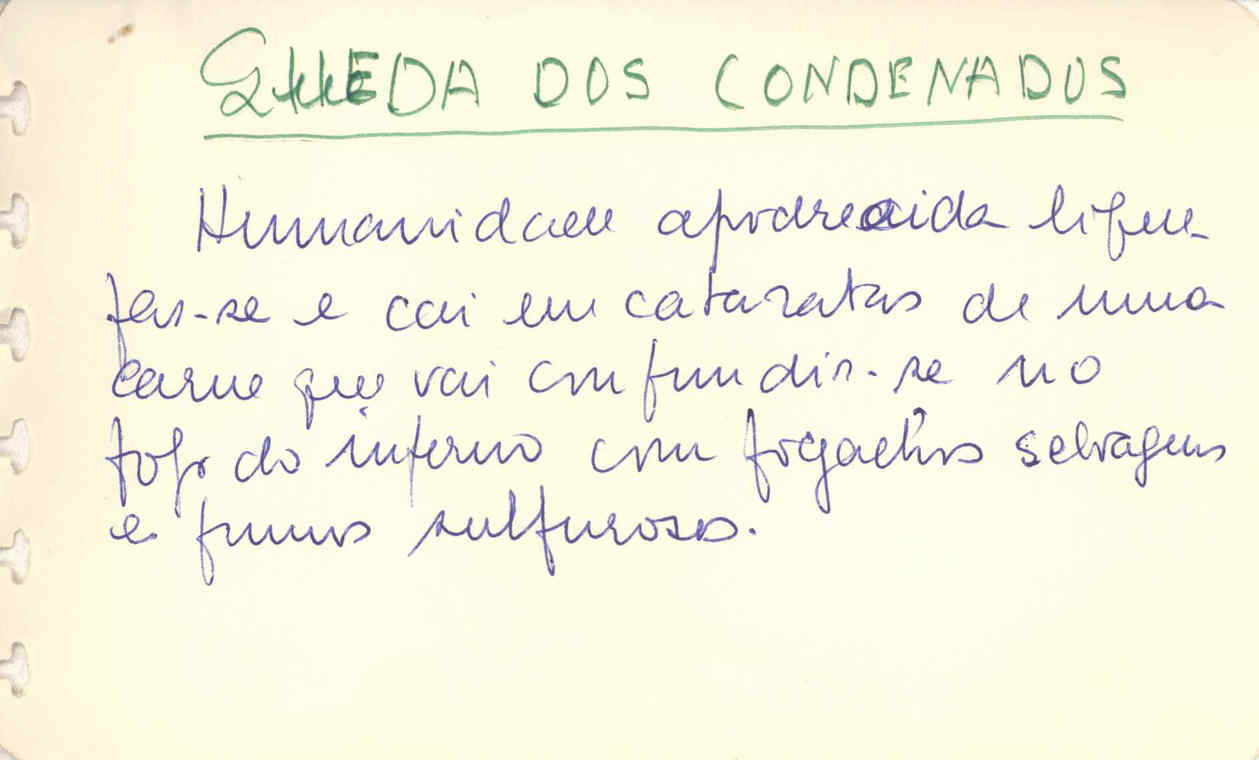 QUEDA DOS CONDENADOS
Humanidade apodrecida lique-
faz-se e cai em cataratas de uma
carne que vai confundir-se no
fogo do inferno com fogachos selvagens
e fumos sulfurosos.